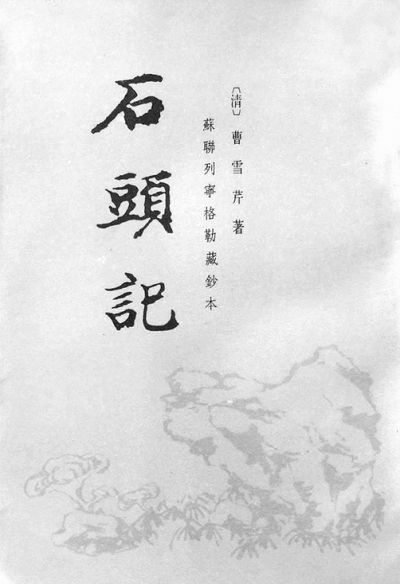 〔清〕曹雪芹著
蘇聯列寧格勒藏鈔本
石頭記